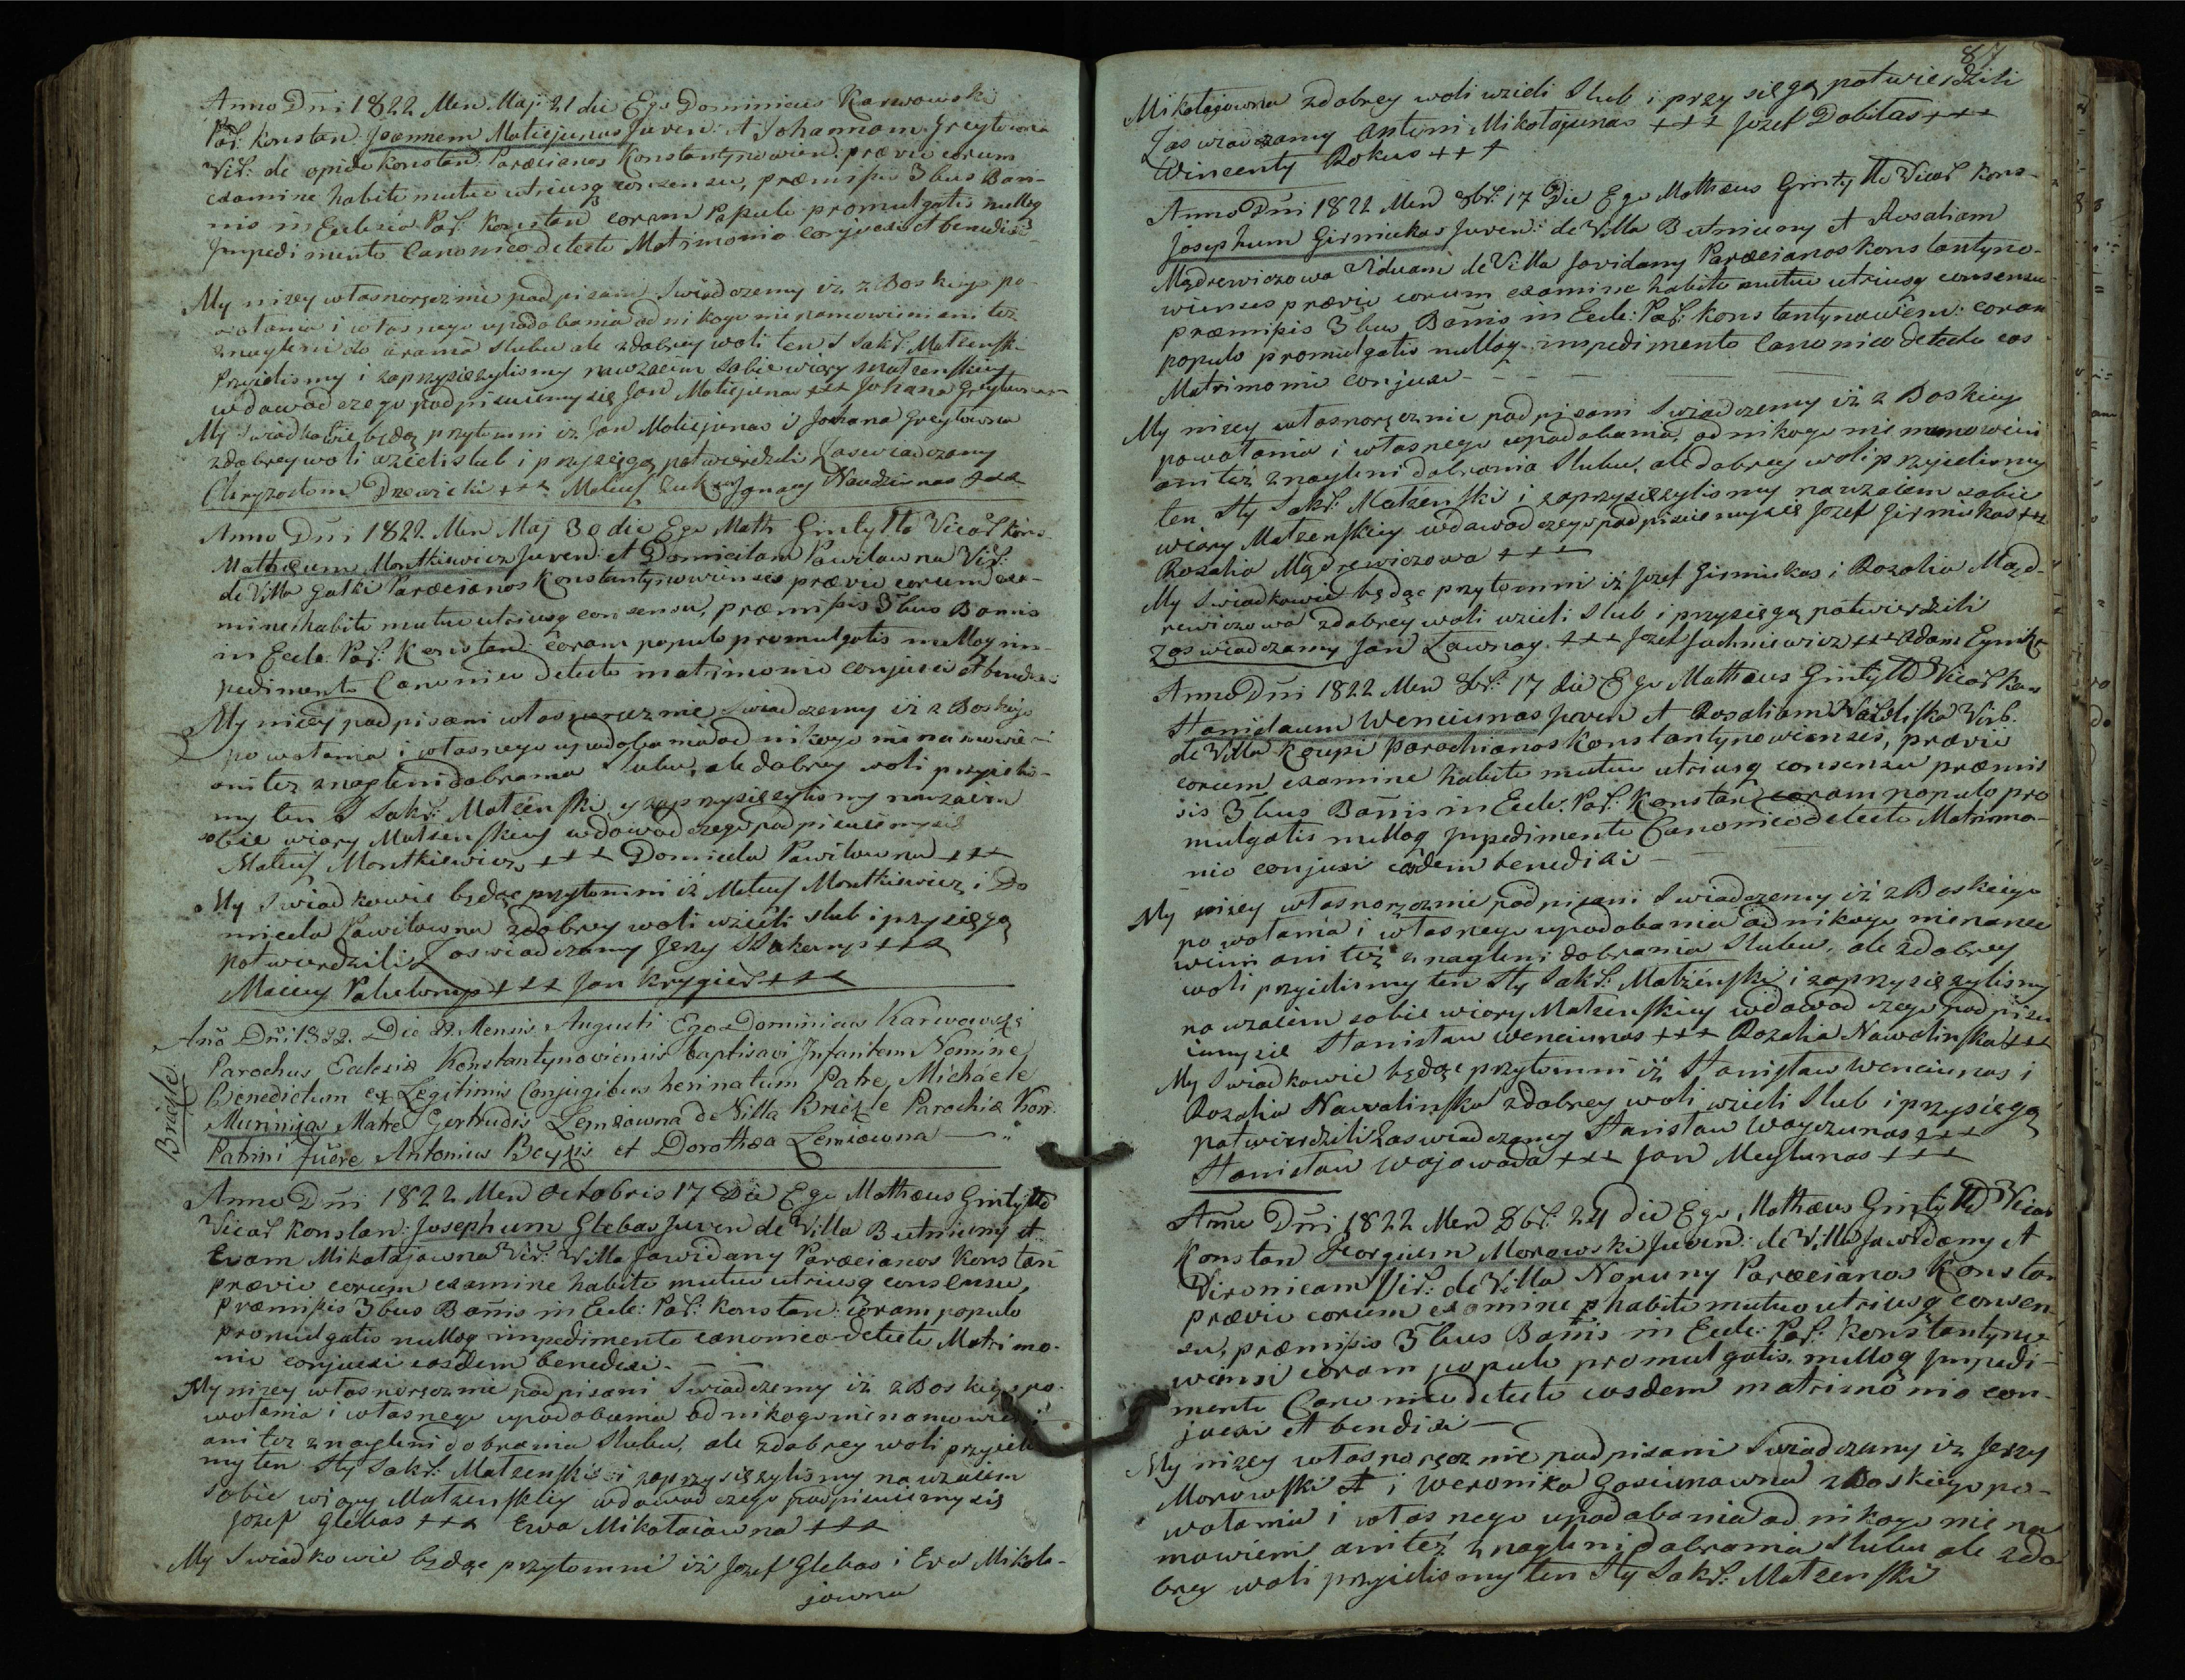 Anno Dñi 1822 Men Maji 21 die Ego Dominicus Karwowski
Par: Konstan: Joannem Maciejunas Juven: et Johannam Greytowna
Vir: de opido Konstan: Paræcianos Konstantynowien: prævie eorum
examine habito mutuo utriusq consensu, præmissis 3bus Ban-
nis in Eclesia Par: Konstan coram Populo promulgatis nulloq
Impedimento Canonico detecto Matrimonio conjunxi et benedixi
My nizey własnoręcznie podpisani Swiadczemy iż z Boskiego po-
wołania i własnego upodobania od nikogo nie namowieni ani też
znagleni do brania slubu ale zdobrey woli ten S Sakr: Matzenski
Przyielismy i zaprzysięzylismy nawzaiem sobie wiary matzenskiey
wdowod czego podpisuiemy się Jan Maciejunas +++ Johana Greytowna +++
My Swiadkowie będąc przytomni iz Jan Maciejunas i Johana Greytowna
zdobrey woli wzieli slub i przysięgą potwierdzili Zaswiadczamy
Chryzostom Drewicki +++ Mateusz Ignacy Naudziunas +++
Anno Dñi 1822 Men Maj 30 die Ego Math Gintyłło Vicar Kons-
Mathæum Montkiewicz Juven: et Domicelam Pawiłowna Vir:
de Villa Gałki Paræcianos Konstantynowienses prævio eorum exa-
mine habito mutuo utriusq consensu, præmissis 3bus Bannis
in Ecle: Par: Konstan: coram populo promulgatis nulloq im-
pedimento Canonico detecto matrimonio conjunxi et benedixi
My nizey podpisani własnoręcznie Swiadczemy iż z Boskiego
powołania i własnego upodobania od nikogo nie namowieni
ani tez znagleni dobrania Slubu, ale dobrey woli przyieli-
my ten S Sakr: Matzenski y zaprzysięzylismy nawzaiem
sobie wiary Matzenskiey wdowod czego podpisuiemy się
Mateusz Montkiewicz +++ Domicela Pawiłowna +++
My Swiadkowie będąc przytomni iż Mateusz Montkiewicz i Do
micela Pawiłowna zdobrey woli wzieli slub i przysięgą
potwierdzili Zaswiadczamy Jerzy +++
Maciey +++ Jan Krygier +++
Año Dñi 1822. Die 27 Mensis Augusti Ego Dominicus Karwowski
Parochus Eclesiæ Konstantynoviensis baptisavi Infantem Nomine
Benedictum ex Legitimis Conjugibus heri natum Patre Micháele
Murinias Matre Gertrudis Lemżowna de Villa Briezle Parochiæ Kon:
Patrini fuêre Antonius Beyzis et Dorothæa Lemżowna
Briezle
Anno Dñi 1822 Men Octobris 17 Die Ego Mathæus Gintyłło
Vicar Konstan: Josephum Glebas Juven de Villa Butniuny et
Evam Mikołajowna Vir: Villa Jawidany Paræcianos Konstan
prævio eorum examine habito mutuo utriusq consensu,
præmissis 3bus Bañis in Ecle: Par: Konstan: coram populo
promulgatis nulloq impedimento canonico detecto Matrimo-
nio conjunxi eosdem benedixi-
My nizey własnoręcznie podpisani Swiadczemy iż z Boskiego po-
wołania i własnego upodobania od nikogo nie namowieni
ani tez znagleni dobrania Slubu, ale zdobrey woli przyieli
my ten Sty Sakr: Matzenski i zaprzysięzylismy nawzaiem
sobie wiary Matzenskiey wdowod czego podpisuiemy się
Jozef Glebas +++ Ewa Mikołaiowna +++
My Swiadkowie będąc przytomni iż Jozef Glebas i Eva Mikoła-
jowna
87
Mikołajowna zdobrey woli wzieli Slub i przysięgą potwierdzili
Zaswiadczamy Antoni Mikołajunas +++ Jozef Dobitas +++
Wincenty Rokus +++
Anno Dñi 1822 Men 8br: 17 Die Ego Mathæus Gintyłło Vicar Kons-
Josephum Girniukas Juven: de Villa Butniuny et Rosaliam
Mądrewiczowa Viduam de Villa Jovidany Paræcianos Konstantyno-
wienses prævio eorum examine habito mutuo utriusq consensu
præmissis 3bus Bañis in Ecle: Par: Konstantynowien: coram
populo promulgatis nulloq impedimento Canonico detecto eos
Matrimonio conjunxi-
My nizey własnoręcznie podpisani Swiadczemy iż z Boskiego
powołania i własnego upodobania, od nikogo nie namowieni
ani też znagleni dobrania Slubu, ale dobrey woli przyielismy
ten Sty Sakr: Matzenski i zaprzysięzylismy nawzaiem sobie
wiary Matzenskiey wdowod czego podpisuiemy się Jozef Girniukas +++
Rozalia Mądrewiczowa +++
My Swiadkowie będąc przytomni iż Jozef Girniukas i Rozalia Mąd-
rewiczowa zdobrey woli wzieli Slub i przysięgą potwierdzili
zaswiadczamy Jan Ławnay +++ Jozef Juchniewicz +++ Adam
Anno Dñi 1822 Men 8br: 17 die Ego Mathæus Gintyłło Vicar Kon
Stanislaum Wenciunas Juven et Rosaliam Nawolinska Virb.
de Villa Krupi parochianos Konstantynowienses, prævio
eorum examine habito mutuo utriusq consensu præmis
sis 3bus Bañis in Ecle: Par: Konstan: coram populo pro
mulgatis nulloq Impedimento Canonico detecto Matrimo-
nio conjunxi eosdem benedixi-
My nizey własnoręcznie podpisani Swiadczemy iż z Boskiego
powołania i własnego upodobania od nikogo nie namo
wieni ani też znagleni dobrania Slubu, ale zdobrey
woli przyielismy ten Sty Sakr: Matzenski i zaprzysięzylismy
nawzaiem sobie wiary Matzenskiey wdowod czego podpisu
iemy się Stanisław Wenciunas +++ Rozalia Nawolinska +++
My Swiadkowie będąc przytomni iż Stanisław Wenciunas i
Rozalia Nawolinska zdobrey woli wzieli Slub i przysięgą
potwierdzili Zaswiadczamy Stanisław Woyczunas +++
Stanisław Wojowada +++ Jan +++
Anno Dñi 1822 Men 8br: 24 die Ego Mathæus Gintyłło Vicar
Konstan Georgium Morowski Juven: de Villa Jawidany et
Vironicam Vir: de Villa Noruny Paræcianos Konstan
prævio eorum examine habito mutuo utriusq consen-
su, præmissis 3bus Bañis in Ecle: Par: Konstantyno
wiensi coram populo promulgatis, nulloq Impedi-
mento Canonico detecto eosdem matrimonio con-
junxi et bendixi-
My nizey własnoręcznie podpisani Swiadczemy iz Jerzy
Morowski et i Weronika Gasiunowna z Boskiego po-
wołania i własnego upodobania od nikogo nie na
mowieni ani też znagleni dobrania Slubu ale zdo
brey woli przyielismy ten Sty Sakr: Matzenski